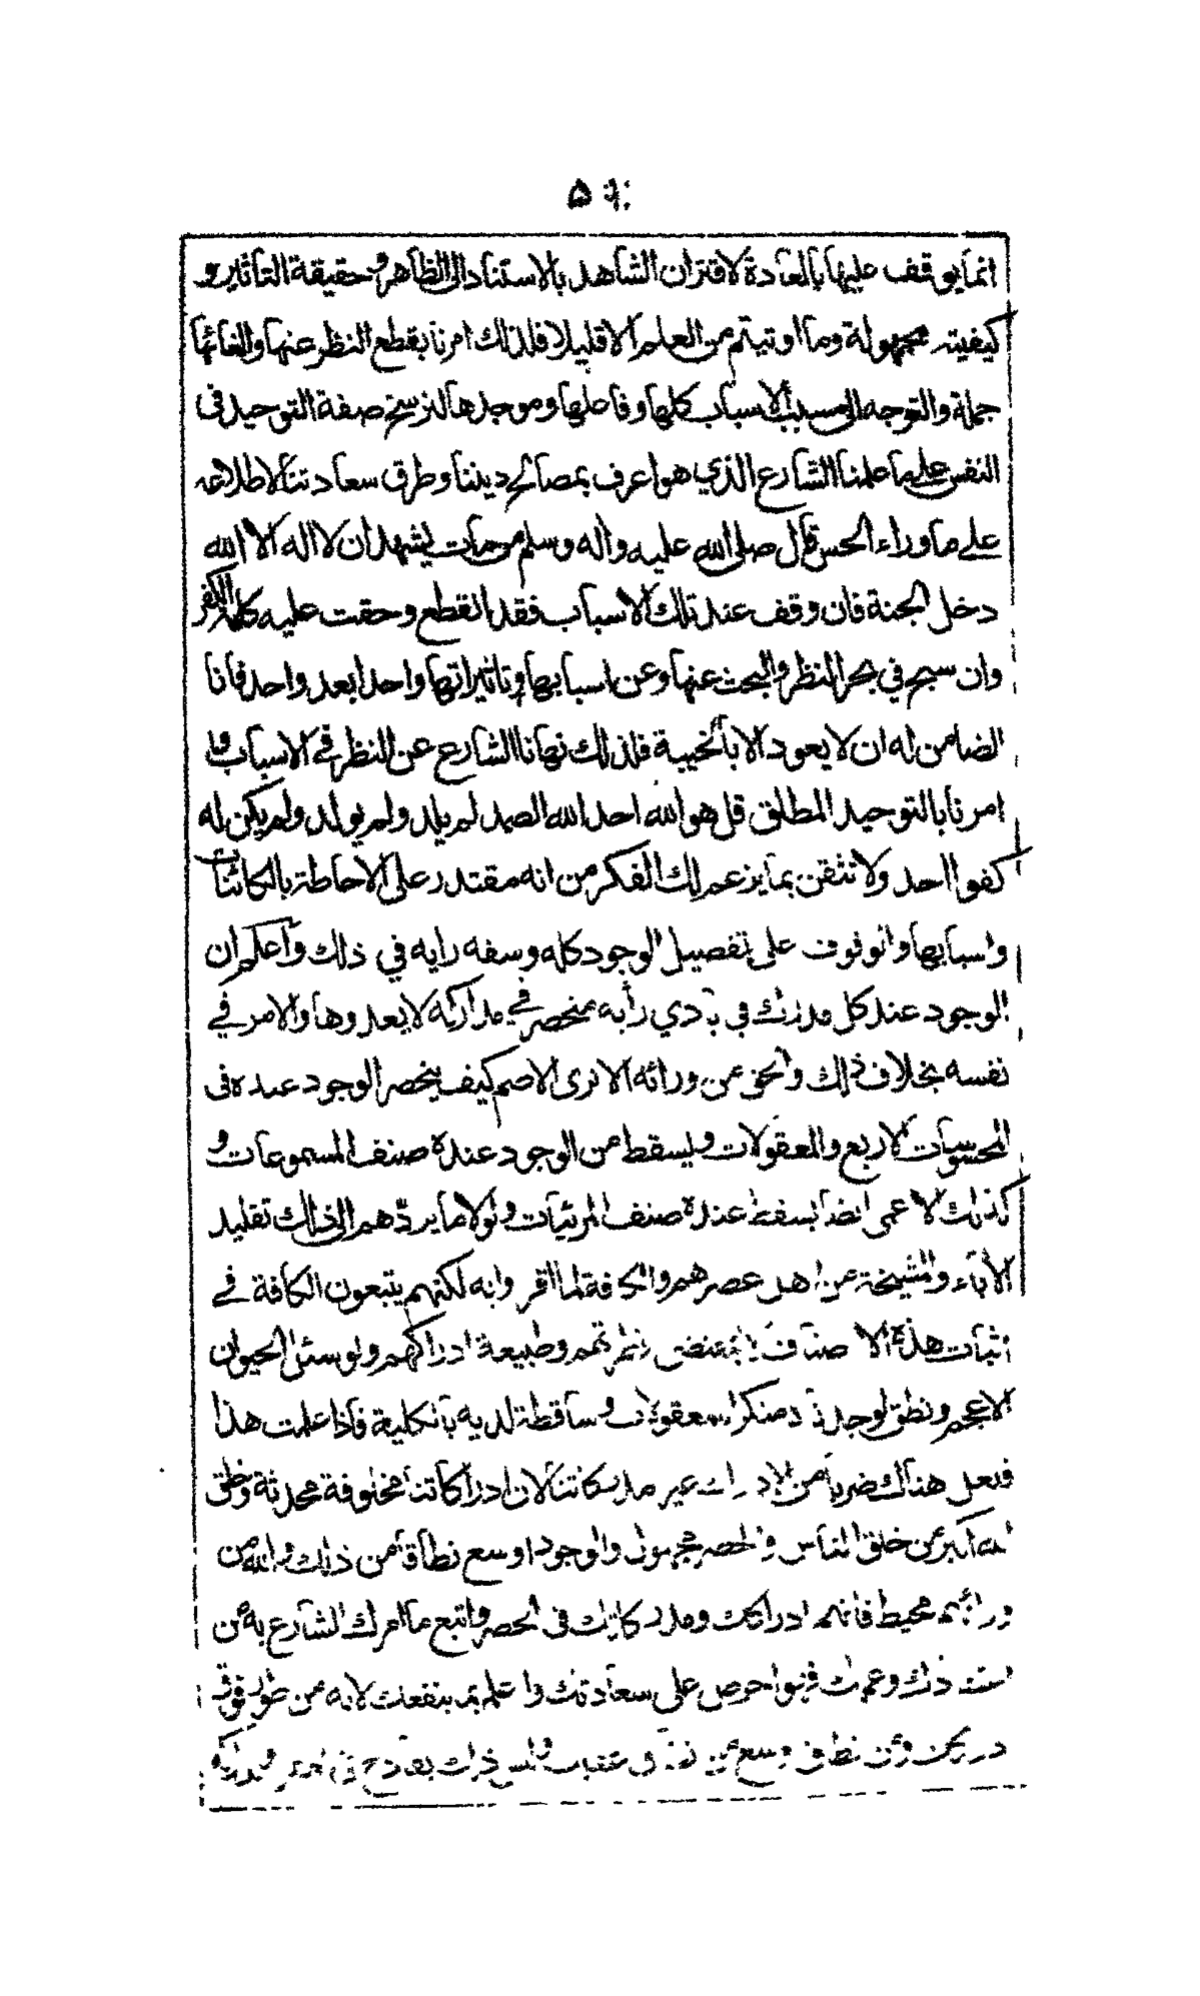 انما يوقف عليها بالعادة لاقتران الشاهد بالاستناد الى الظاهر وحقيقة التاثير و
كيفيته مجهولة وما اوتيتم من العلم الا قليلا فلذلك امرنا بقطع النظر عنها والغائها
جملة والتوجه الى مسبب الاسباب كلها وفاعلها وموجدها لترسخ صفة التوحيد فى
النفس على ما علمنا الشارع الذي هو اعرف بمصالح ديننا وطرق سعادتنا لاطلاعه
على ما وراء الحس قال صلى الله عليه واله وسلم من مات يشهد ان لا اله الا الله
دخل الجنة فان وقف عند تلك الاسباب فقد انقطع وحقت عليه كلمة الكفر
وان سبح في بحر النظر والبحث عنها وعن اسبابها وتاثيراتها واحدا بعد واحد فانا
الضامن له ان لا يعود الا بالخيبة فلذلك نهانا الشارع عن النظر في الاسباب و
امرنا بالتوحيد المطلق قل هو الله احد الله الصمد لم يلد ولم يولد ولم يكن له
كفوا احد ولا تثقن بما يزعم لك الفكر من انه مقتدر على الاحاطة بالكائنات
واسبابها والوقوف على تفصيل الوجود كله وسفه رايه في ذلك واعلم ان
الوجود عند كل مدرك في بادي رأيه منحصر في مداركه لا يعدوها والامر في
نفسه بخلاف ذلك والحق من ورائه الا ترى الاصم كيف ينحصر الوجود عنده فى
المحسوسات الاربع والمعقولات ويسقط من الوجود عنده صنف المسموعات و
كذلك الاعمى ايضا يسقط عنده صنف المرئيات ولولا ما يردّهم الى ذلك تقليد
الآباء والمشيخة من اهل عصرهم والكافة لما اقروا به لكنهم يتبعون الكافة في
اثبات هذه الاصناف لا بمقتضى فطرتهم وطبيعة ادراكهم ولو سئل الحيوان
الاعجم ونطق لوجدناه منكرا للمعقولات وساقطة لديه بالكلية فاذا علمت هذا
فلعل هناك ضربا من الادراك غير مدركاتنا لان ادراكاتنا مخلوقة محدثة وخلق
الله اكبر من خلق الناس والحصر مجهول والوجود اوسع نطاقا من ذلك والله من
ورائهم محيط فاتهم ادراكك ومدركاتك في الحصر واتبع ما امرك الشارع به من
ذلك وعملك فهو احرص على سعادتك واعلم بما ينفعك لانه من طور فوق